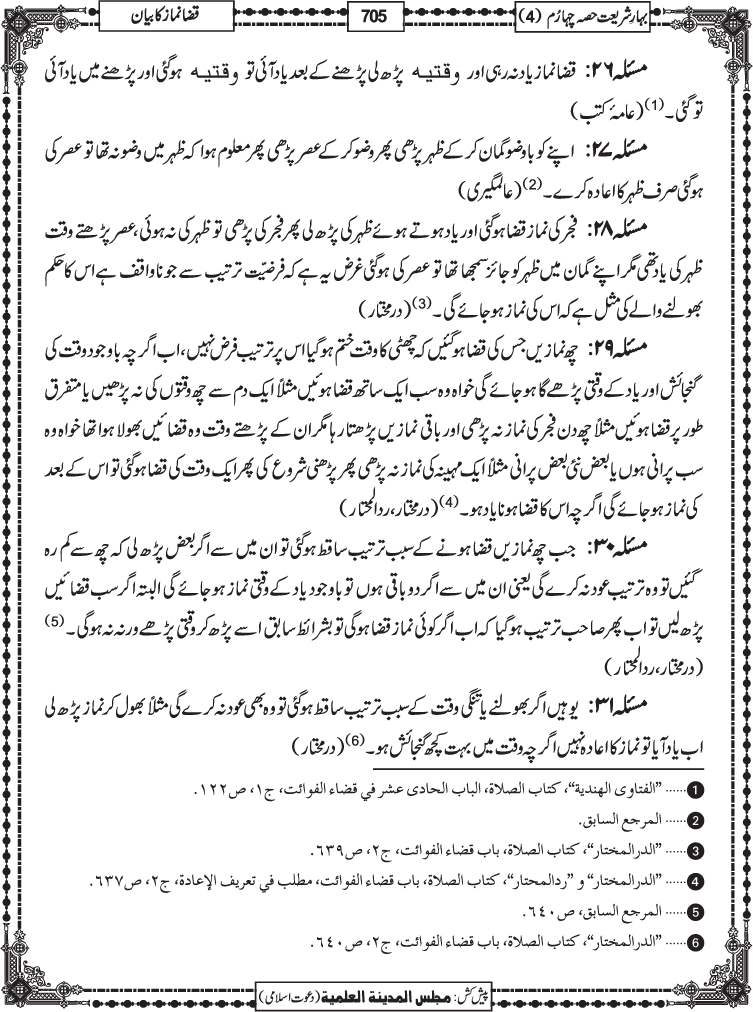 بہارِ شریعت حصہ چہارم (4)
705
قضا نماز کا بیان
مسئلہ ۲۶: قضا نماز یاد نہ رہی اور وقتیہ پڑھ لی پڑھنے کے بعد یاد آئی تو وقتیہ ہوگئی اور پڑھنے میں یاد آئی
تو گئی۔(1) (عامۂ کتب)
مسئلہ ۲۷: اپنے کو باوضو گمان کر کے ظہر پڑھی پھر وضو کر کے عصر پڑھی پھر معلوم ہوا کہ ظہر میں وضو نہ تھا تو عصر کی
ہوگئی صرف ظہر کا اعادہ کرے۔(2) (عالمگیری)
مسئلہ ۲۸: فجر کی نماز قضا ہوگئی اور یاد ہوتے ہوئے ظہر کی پڑھ لی پھر فجر کی پڑھی تو ظہر کی نہ ہوئی، عصر پڑھتے وقت
ظہر کی یاد تھی مگر اپنے گمان میں ظہر کو جائز سمجھا تھا تو عصر کی ہوگئی غرض یہ ہے کہ فرضیّت ترتیب سے جو ناواقف ہے اس کا حکم
بھولنے والے کی مثل ہے کہ اس کی نماز ہو جائے گی۔(3) (درمختار)
مسئلہ ۲۹: چھ نمازیں جس کی قضا ہوگئیں کہ چھٹی کا وقت ختم ہوگیا اس پر ترتیب فرض نہیں، اب اگرچہ باوجود وقت کی
گنجائش اور یاد کے وقتی پڑھے گا ہو جائے گی خواہ وہ سب ایک ساتھ قضا ہوئیں مثلاً ایک دم سے چھ وقتوں کی نہ پڑھیں یا متفرق
طور پر قضا ہوئیں مثلاً چھ دن فجر کی نماز نہ پڑھی اور باقی نمازیں پڑھتا رہا مگر ان کے پڑھتے وقت وہ قضائیں بھولا ہوا تھا خواہ وہ
سب پرانی ہوں یا بعض نئی بعض پرانی مثلاً ایک مہینہ کی نماز نہ پڑھی پھر پڑھنی شروع کی پھر ایک وقت کی قضا ہوگئی تو اس کے بعد
کی نماز ہو جائے گی اگرچہ اس کا قضا ہونا یاد ہو۔(4) (درمختار، ردالمحتار)
مسئلہ ۳۰: جب چھ نمازیں قضا ہونے کے سبب ترتیب ساقط ہوگئی تو ان میں سے اگر بعض پڑھ لی کہ چھ سے کم رہ
گئیں تو وہ ترتیب عود نہ کرے گی یعنی ان میں سے اگر دو باقی ہوں تو باوجود یاد کے وقتی نماز ہو جائے گی البتہ اگر سب قضائیں
پڑھ لیں تو اب پھر صاحب ترتیب ہوگیا کہ اب اگر کوئی نماز قضا ہوگی تو بشرائط سابق اسے پڑھ کر وقتی پڑھے ورنہ نہ ہوگی۔(5)
(درمختار، ردالمحتار)
مسئلہ ۳۱: یوہیں اگر بھولنے یا تنگی وقت کے سبب ترتیب ساقط ہوگئی تو وہ بھی عود نہ کرے گی مثلاً بھول کر نماز پڑھ لی
اب یاد آیا تو نماز کا اعادہ نہیں اگرچہ وقت میں بہت کچھ گنجائش ہو۔(6) (درمختار)
1 ...... "الفتاوى الهندية"، كتاب الصلاة، الباب الحادى عشر في قضاء الفوائت، ج١، ص١٢٢.
2 ...... المرجع السابق.
3 ...... "الدرالمختار"، كتاب الصلاة، باب قضاء الفوائت، ج٢، ص٦٣٩.
4 ...... "الدرالمختار" و "ردالمحتار"، كتاب الصلاة، باب قضاء الفوائت، مطلب في تعريف الإعادة، ج٢، ص٦٣٧.
5 ...... المرجع السابق، ص٦٤٠.
6 ...... "الدرالمختار"، كتاب الصلاة، باب قضاء الفوائت، ج٢، ص٦٤٠.
پیش کش: مجلس المدينة العلمية (دعوت اسلامی)